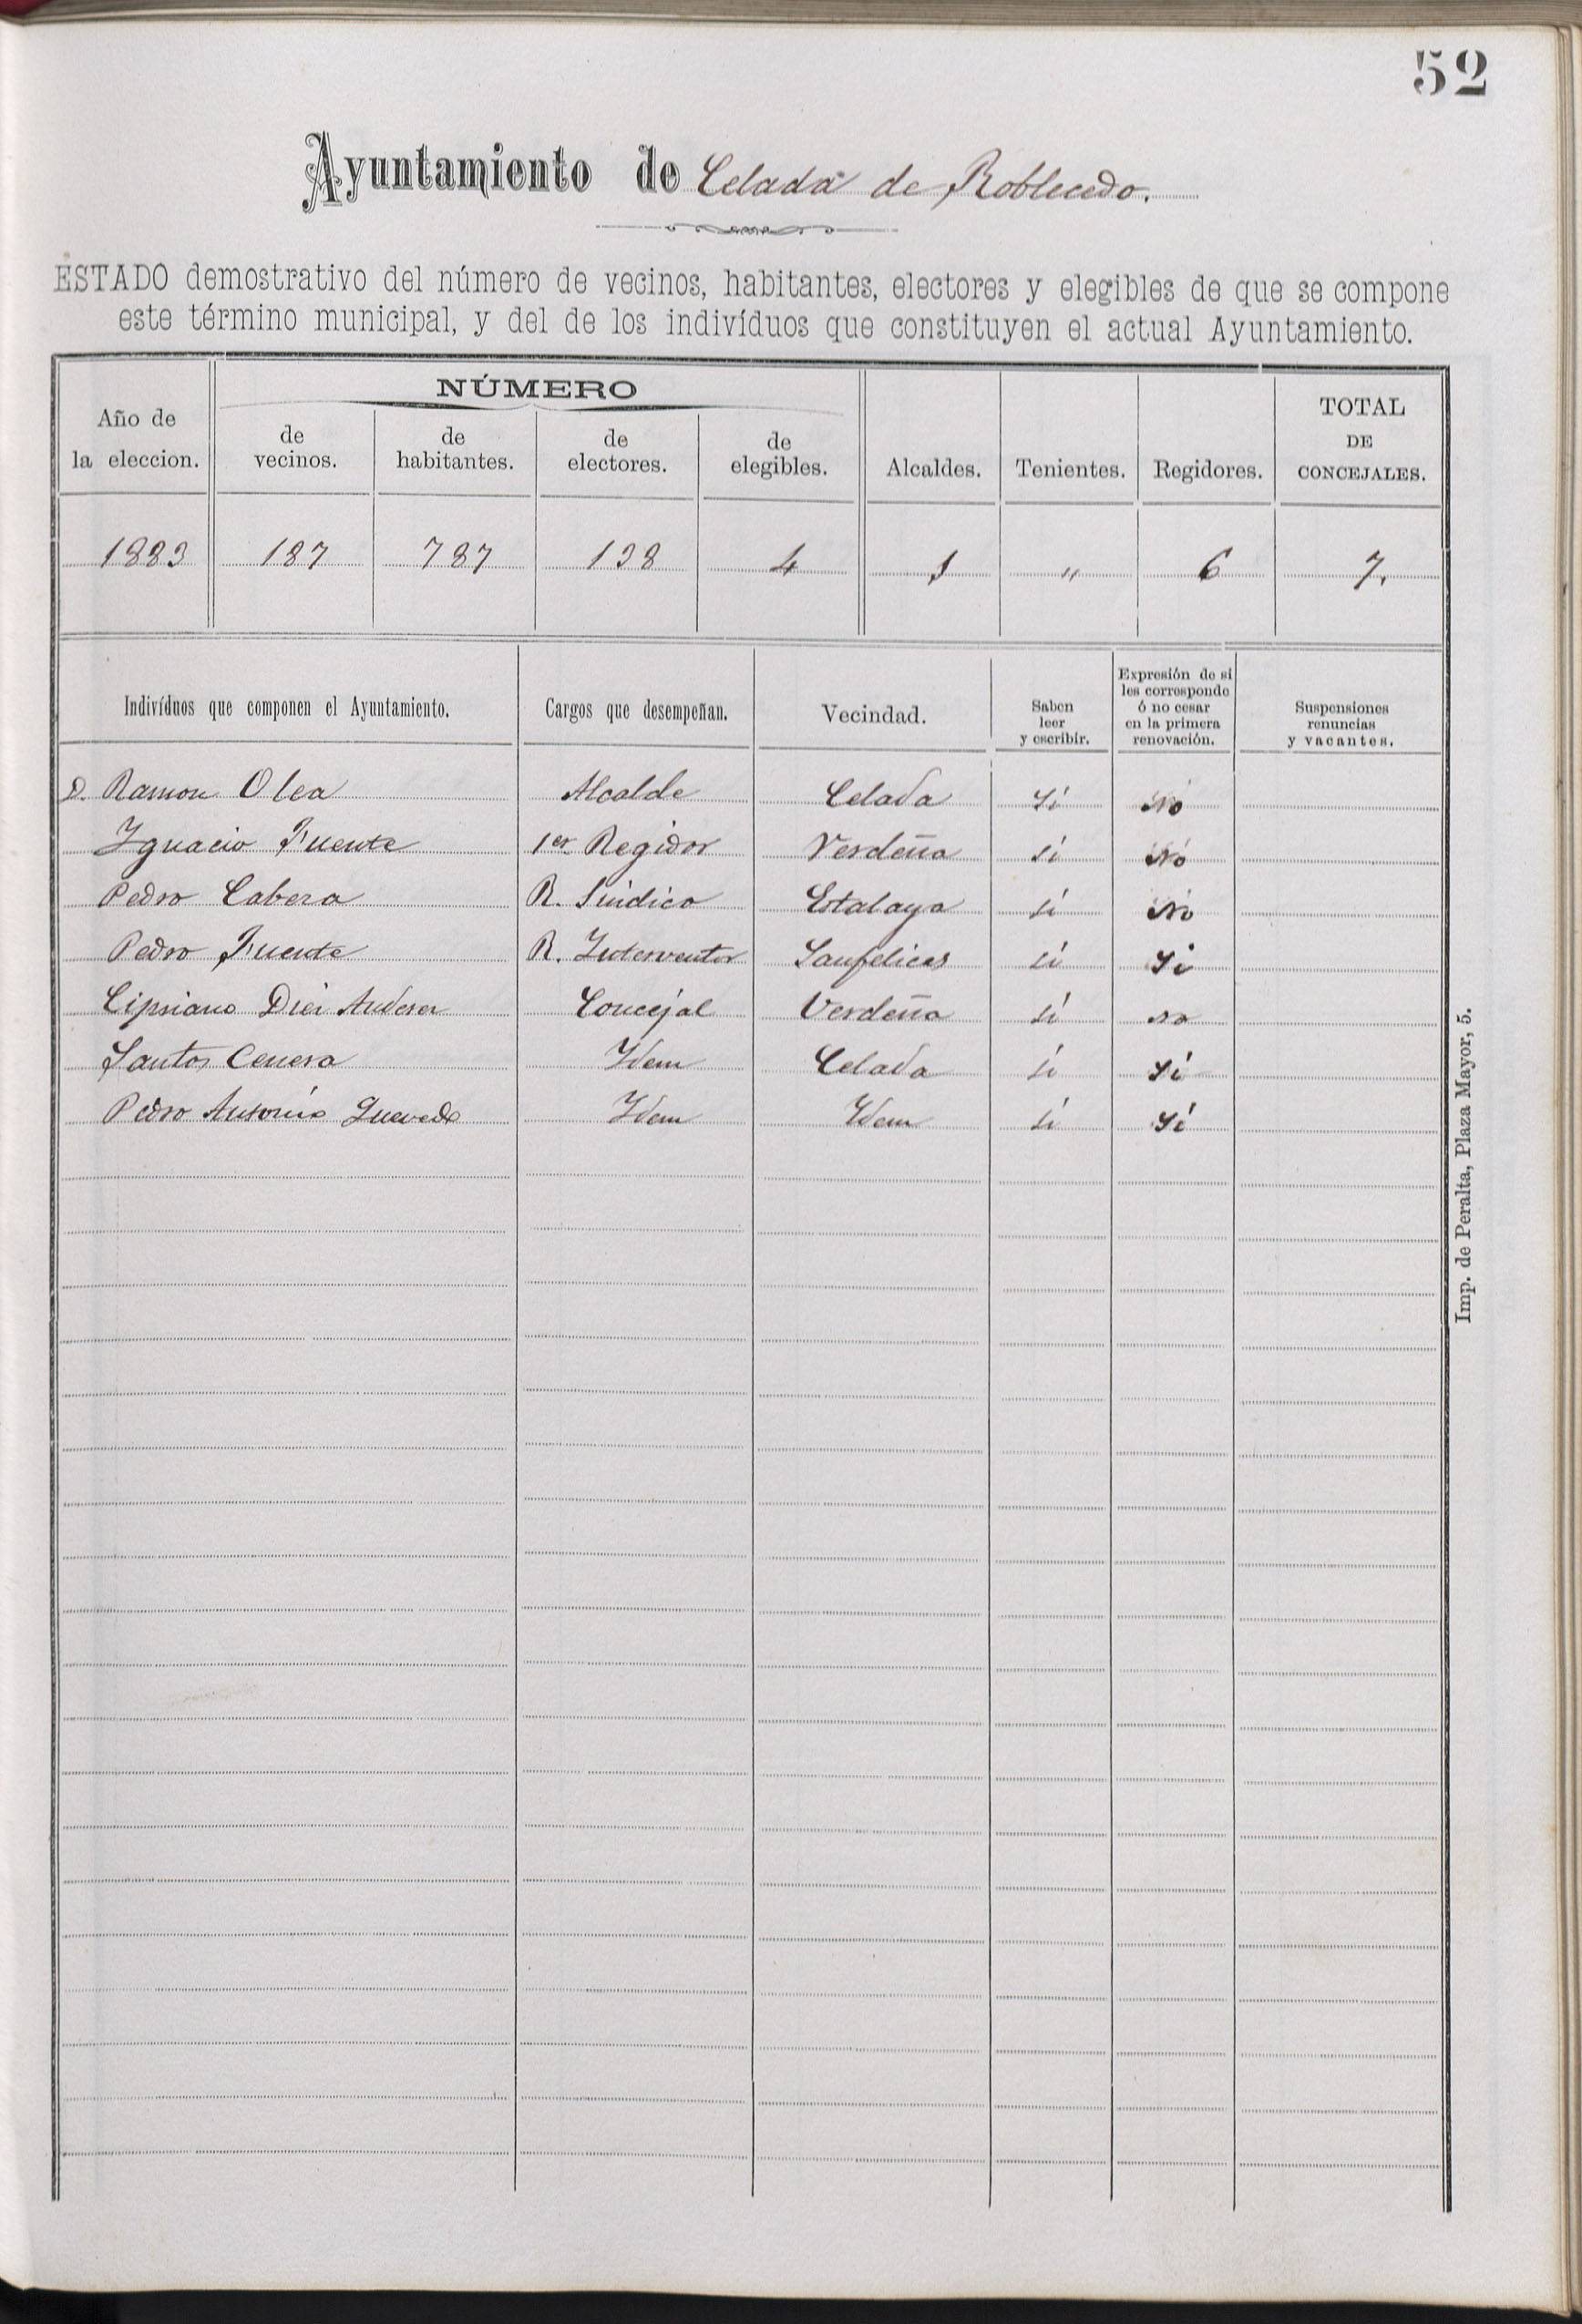 52
Ayuntamiento de Celada de Roblecedo.
ESTADO demostrativo del número de vecinos, habitantes, electores y elegibles de que se compone
este término municipal, y del de los indivíduos que constituyen el actual Ayuntamiento.
Año de la eleccion. NÚMERO de vecinos. de habitantes. de electores. de elegibles. Alcaldes. Tenientes. Regidores. TOTAL DE CONCEJALES.
1883 187 787 138 4 1 " 6 7.
Indivíduos que componen el Ayuntamiento. Cargos que desempeñan. Vecindad. Saben leer y escribir. Expresión de si les corresponde ó no cesar en la primera renovación. Suspensiones renuncias y vacantes.
D. Ramon Olea Alcalde Celada Sí No
Ygnacio Fuente 1er Regidor Verdeña sí No
Pedro Cabeza R. Sindico Estalaya sí No
Pedro Fuente R. Interventor Sanfelices sí Si
Cipriano Diez Concejal Verdeña sí no
Santos Cenera Ydem Celada sí Sí
Pedro Antonio Quevedo Ydem Ydem sí Sí
Imp. de Peralta, Plaza Mayor, 5.